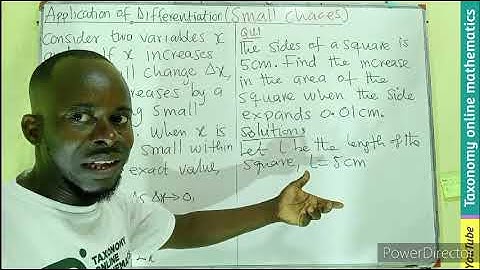 Application of Differentiation (Small chages)
Consider two variables x
If x increases
change Δx,
creases by a
small
when x is
small within
exact value,
As Δx→0,
Qu1
The sides of a square is
5cm. find the increase
in the area of the
square when the side
expands 0.01cm.
Solutions
Let l be the length of the
square, l = 5cm
TAXONOMY
ONLINE
Taxonomy online mathematics
YouTube
PowerDirector